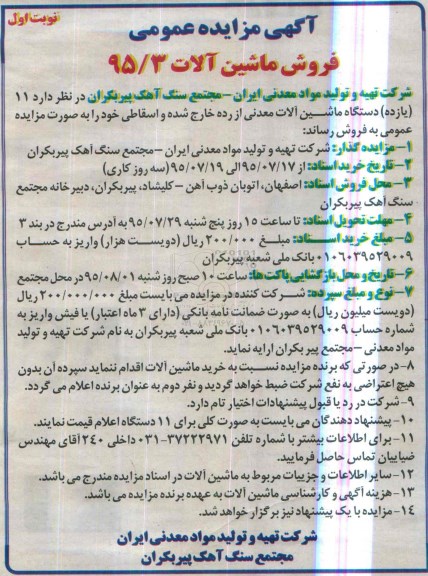 نوبت اول
آگهی مزایده عمومی
فروش ماشین آلات ۹۵/۳
شرکت تهیه و تولید مواد معدنی ایران – مجتمع سنگ آهک پیربکران در نظر دارد ۱۱
(یازده) دستگاه ماشین آلات معدنی از رده خارج شده و اسقاطی خود را به صورت مزایده
عمومی به فروش رساند:
۱- مزایده گذار: شرکت تهیه و تولید مواد معدنی ایران – مجتمع سنگ آهک پیربکران
۲- تاریخ خرید اسناد: از ۹۵/۰۷/۱۷ الی ۹۵/۰۷/۱۹ (سه روز کاری)
۳- محل فروش اسناد: اصفهان، اتوبان ذوب آهن – کلیشاد، پیربکران، دبیرخانه مجتمع
سنگ آهک پیربکران
۴- مهلت تحویل اسناد: تا ساعت ۱۵ روز پنج شنبه ۹۵/۰۷/۲۹ به آدرس مندرج در بند ۳
۵- مبلغ خرید اسناد: مبلغ ۲۰۰/۰۰۰ ریال (دویست هزار) واریز به حساب
۰۱۰۶۰۳۹۵۲۹۰۰۹ بانک ملی شعبه پیربکران
۶- تاریخ و محل بازگشایی پاکت ها: ساعت ۱۰ صبح روز شنبه ۹۵/۰۸/۰۱ در محل مجتمع
۷- نوع و مبلغ سپرده: شرکت کننده در مزایده می بایست مبلغ ۲۰۰/۰۰۰/۰۰۰ ریال
(دویست میلیون ریال) به صورت ضمانت نامه بانکی (دارای ۳ ماه اعتبار) یا فیش واریز به
شماره حساب ۰۱۰۶۰۳۹۵۲۹۰۰۹ بانک ملی شعبه پیربکران به نام شرکت تهیه و تولید
مواد معدنی – مجتمع پیربکران ارایه نماید.
۸- در صورتی که برنده مزایده نسبت به خرید ماشین آلات اقدام ننماید سپرده آن بدون
هیچ اعتراضی به نفع شرکت ضبط خواهد گردید و نفر دوم به عنوان برنده اعلام می گردد.
۹- شرکت در رد یا قبول پیشنهادات اختیار تام دارد.
۱۰- پیشنهاد دهندگان می بایست به صورت کلی برای ۱۱ دستگاه اعلام قیمت نمایند.
۱۱- برای اطلاعات بیشتر با شماره تلفن ۳۷۲۲۲۹۷۱-۰۳۱ داخلی ۲۴۰ آقای مهندس
ضیاییان تماس حاصل فرمایید.
۱۲- سایر اطلاعات و جزییات مربوط به ماشین آلات در اسناد مزایده مندرج می باشد.
۱۳- هزینه آگهی و کارشناسی ماشین آلات به عهده برنده مزایده می باشد.
۱۴- مزایده با یک پیشنهاد نیز برگزار خواهد شد.
شرکت تهیه و تولید مواد معدنی ایران
مجتمع سنگ آهک پیربکران